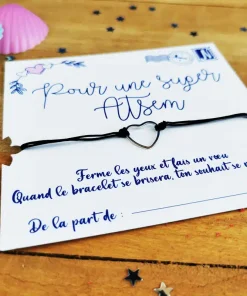 Pour une super
Atsem
Ferme les yeux et fais un vœu
Quand le bracelet se brisera, ton souhait se
De la part de :